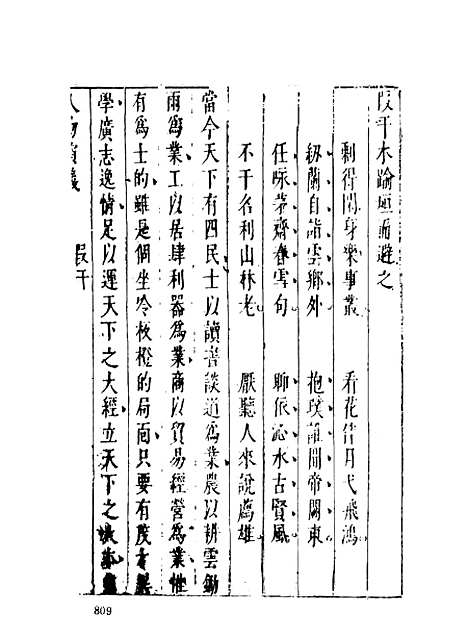 段干木踰垣而避之
剩得閒身樂事叢 看花
紉蘭自詣雲鄉外 抱璞
任咏茅齋春雪句 聊依沁水古賢風
不干名利山林老 厭聽人來說薦雄
當今天下有四民士以讀書談道爲業農以耕雲鋤
雨爲業工以居肆利器爲業商以貿易經營爲業惟
有爲士的雖是個坐冷板橙的局面只要有茂才異
學廣志逸情足以運天下之大經立天下之大
人物演義 段干
809